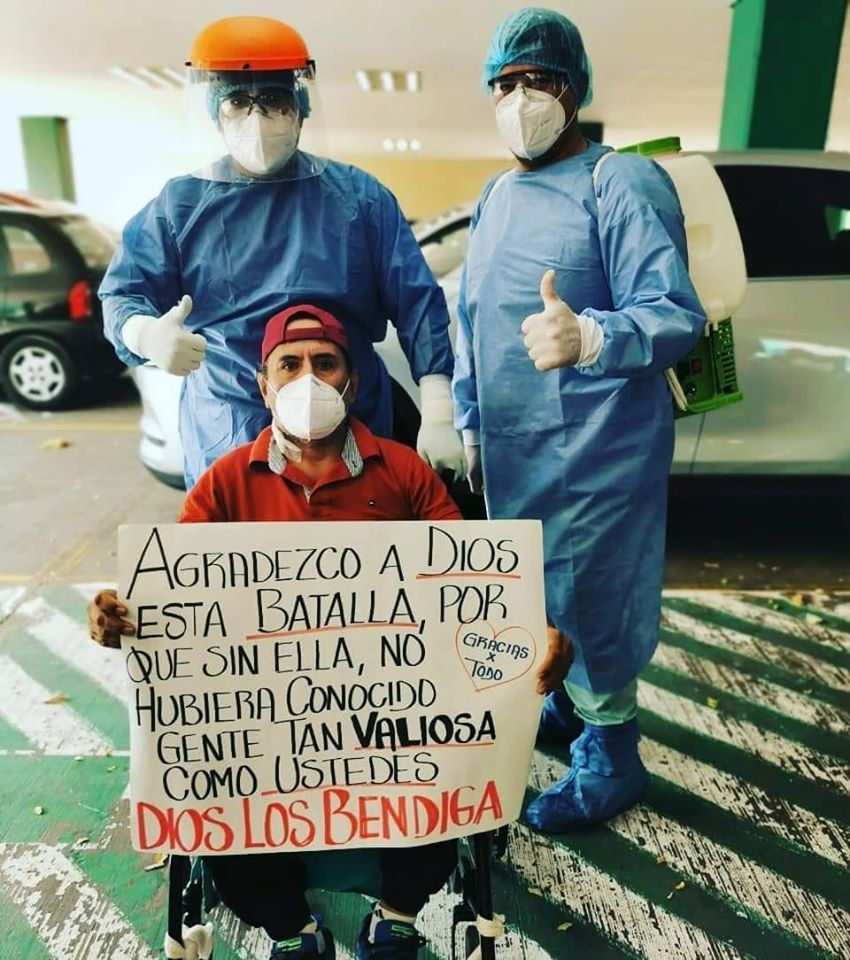 AGRADEZCO A DIOS
ESTA BATALLA, POR
QUE SIN ELLA, NO
HUBIERA CONOCIDO
GENTE TAN VALIOSA
COMO USTEDES
DIOS LOS BENDIGA
GRACIAS
X
TODO